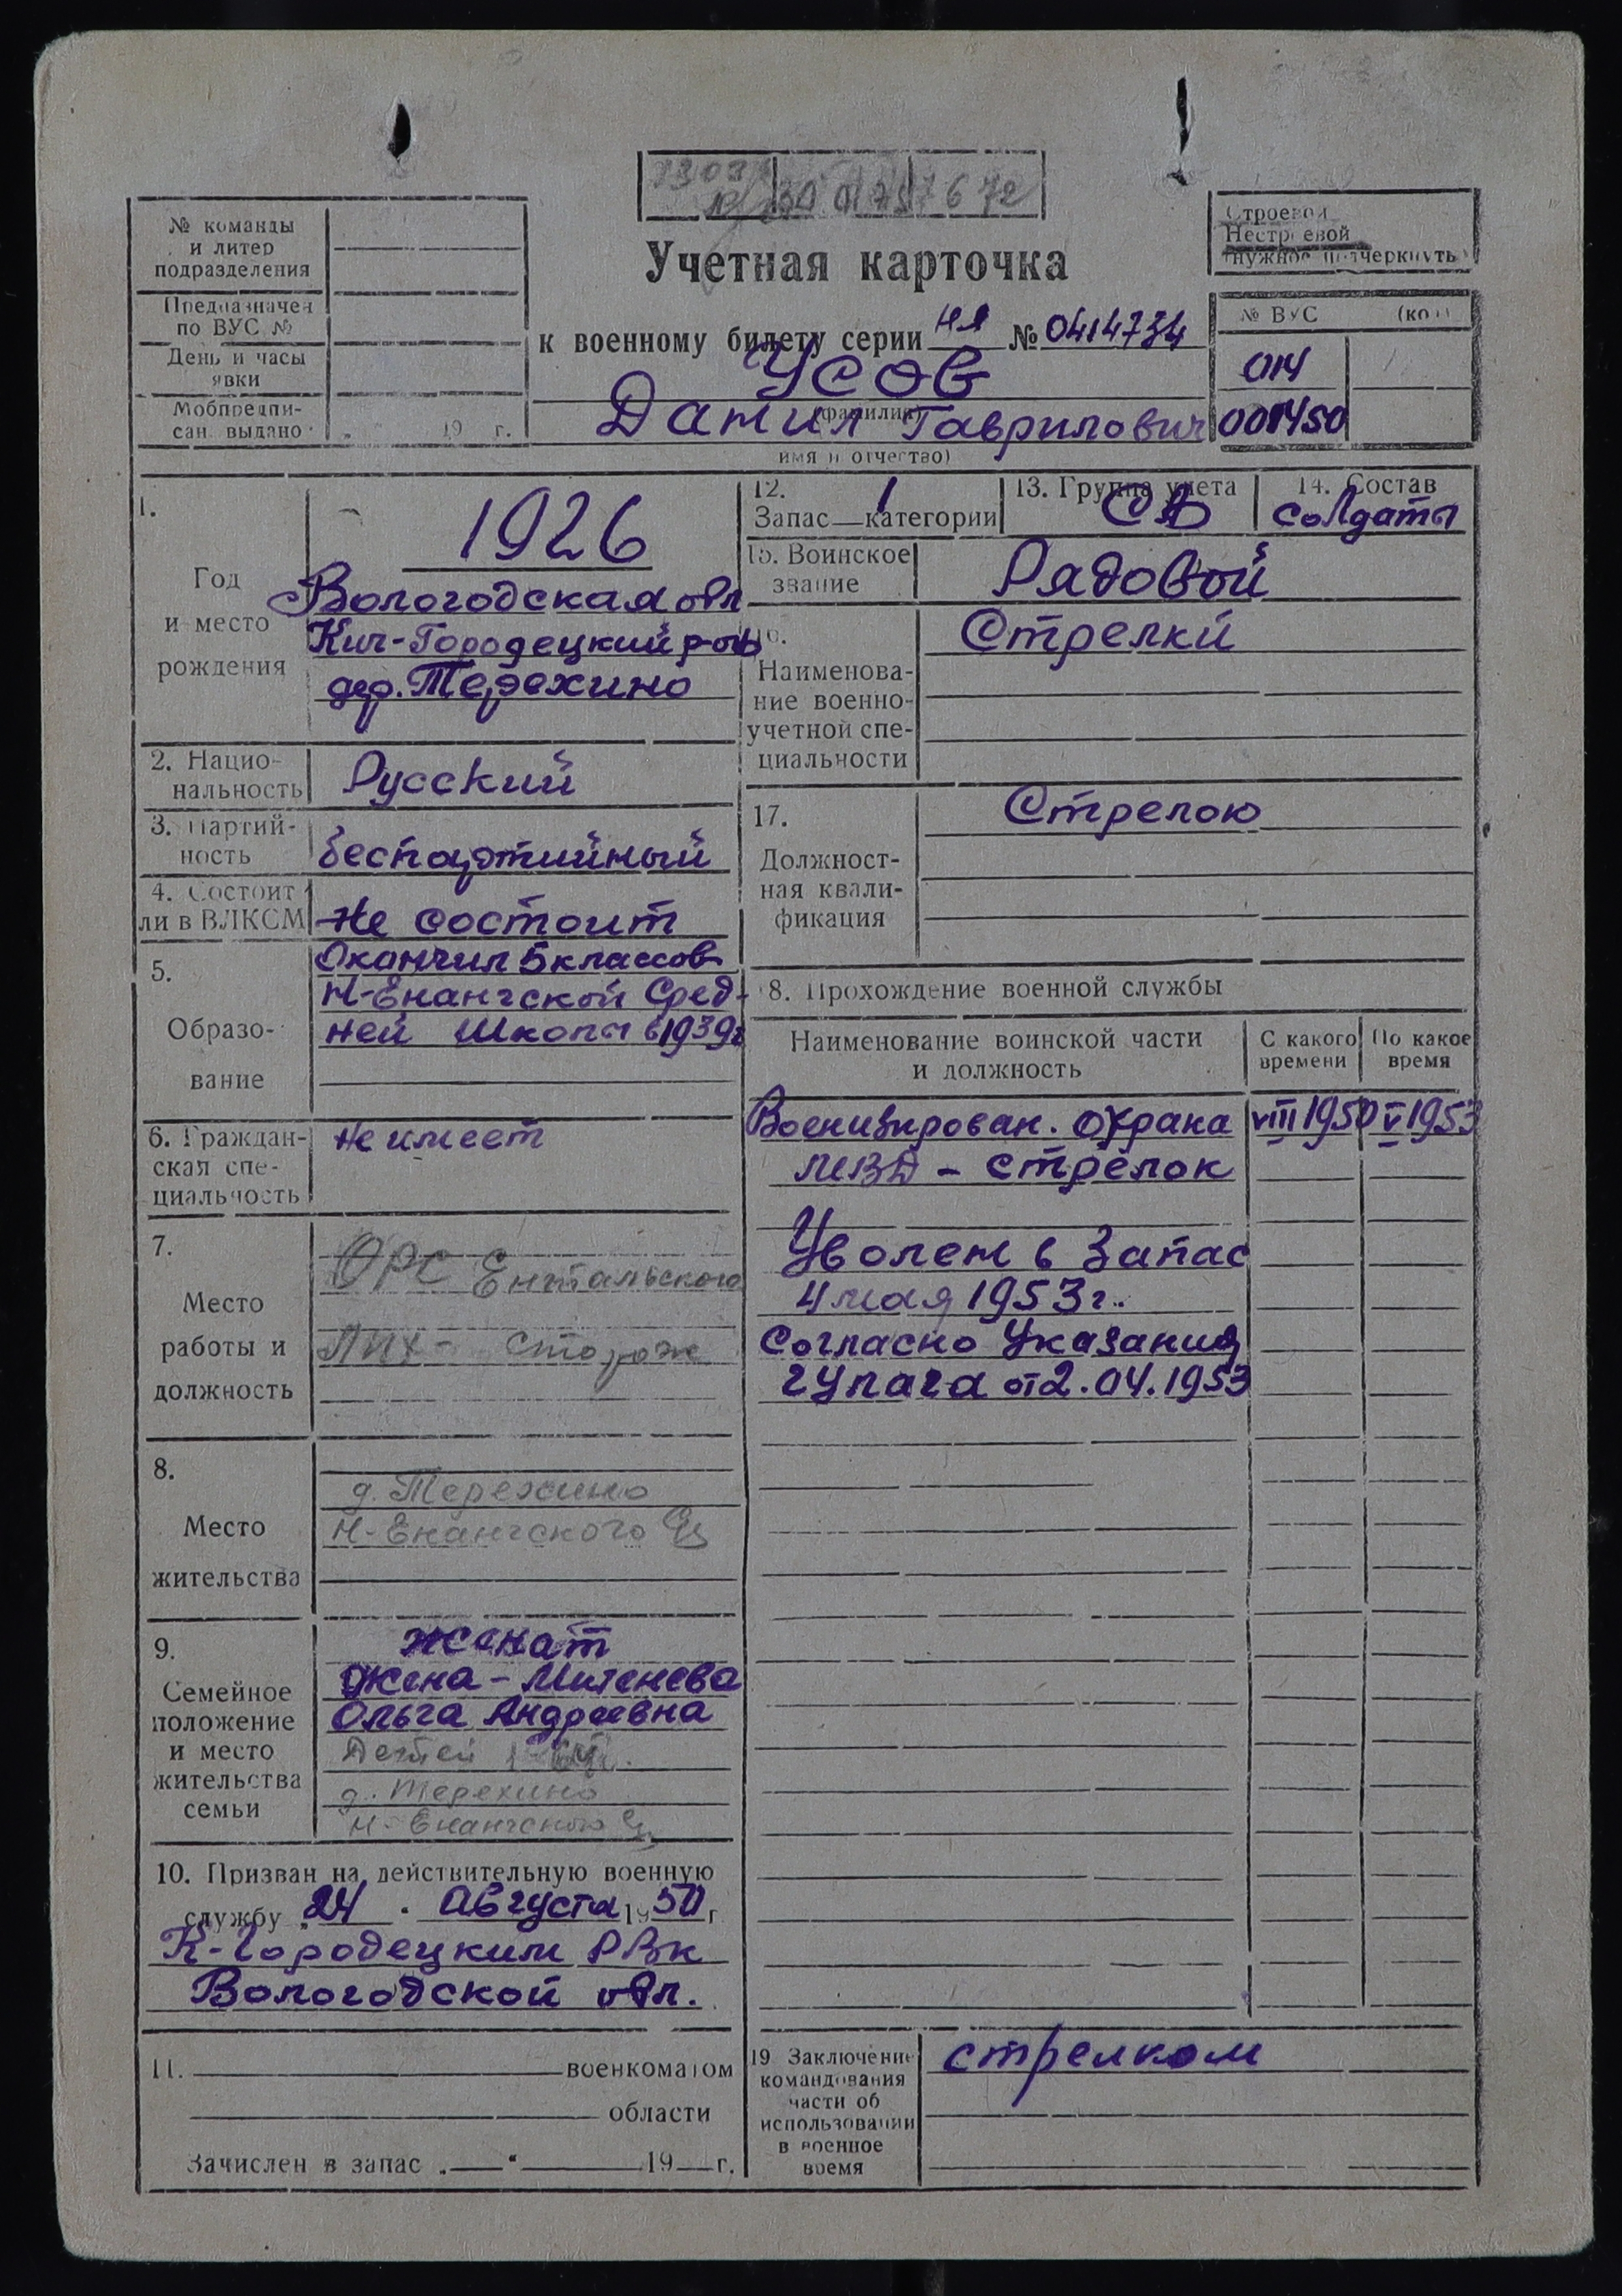 № команды
и литер
подразделения
Предназначен
по ВУС №
День и часы
явки
Мобпредпи-
сан. выдано
19 г.
Учетная карточка
к военному билету серии НЯ № 0414734
Усов
(фамилия)
Данил Гаврилович
имя и отчество)
Строевой
Нестроевой
(нужное подчеркнуть)
№ ВУС (код)
014
001450
1.
Год
и место
рождения
1926
Вологодская обл
Кич-Городецкий р-он
дер. Терехино
2. Нацио-
нальность
Русский
3. Партий-
ность
беспартийный
4. Состоит
ли в ВЛКСМ
Не состоит
5.
Образо-
вание
Окончил 5 классов
Н-Енангской Сред-
ней Школы в 1939г
6. Граждан-
ская спе-
циальность
не имеет
7.
Место
работы и
должность
ОРС Ентальского
ЛПХ - сторож
8.
Место
жительства
д. Терехино
Н-Енангского
9.
Семейное
положение
и место
жительства
семьи
женат
Жена - Митенева
Ольга Андреевна
Детей
д. Терехино
Н-Енангского
10. Призван на действительную военную
службу „24 " Августа 1950 г
К-Городецким РВК
Вологодской обл.
11. военкоматом
области
Зачислен в запас „ " 19 г.
12.
Запас 1 категории
13. Группа учета
СА
14. Состав
солдаты
15. Воинское
звание
Рядовой
16.
Наименова-
ние военно-
учетной спе-
циальности
Стрелки
17.
Должност-
ная квали-
фикация
Стрелок
18. Прохождение военной службы
Наименование воинской части
и должность
С какого
времени
По какое
время
Военизирован. охрана VIII 1950 V 1953
МВД - стрелок
Уволен в запас
4 мая 1953 г.
Согласно Указания
гулага от 2.04.1953
19 Заключение
командования
части об
использовании
в военное
время
стрелком